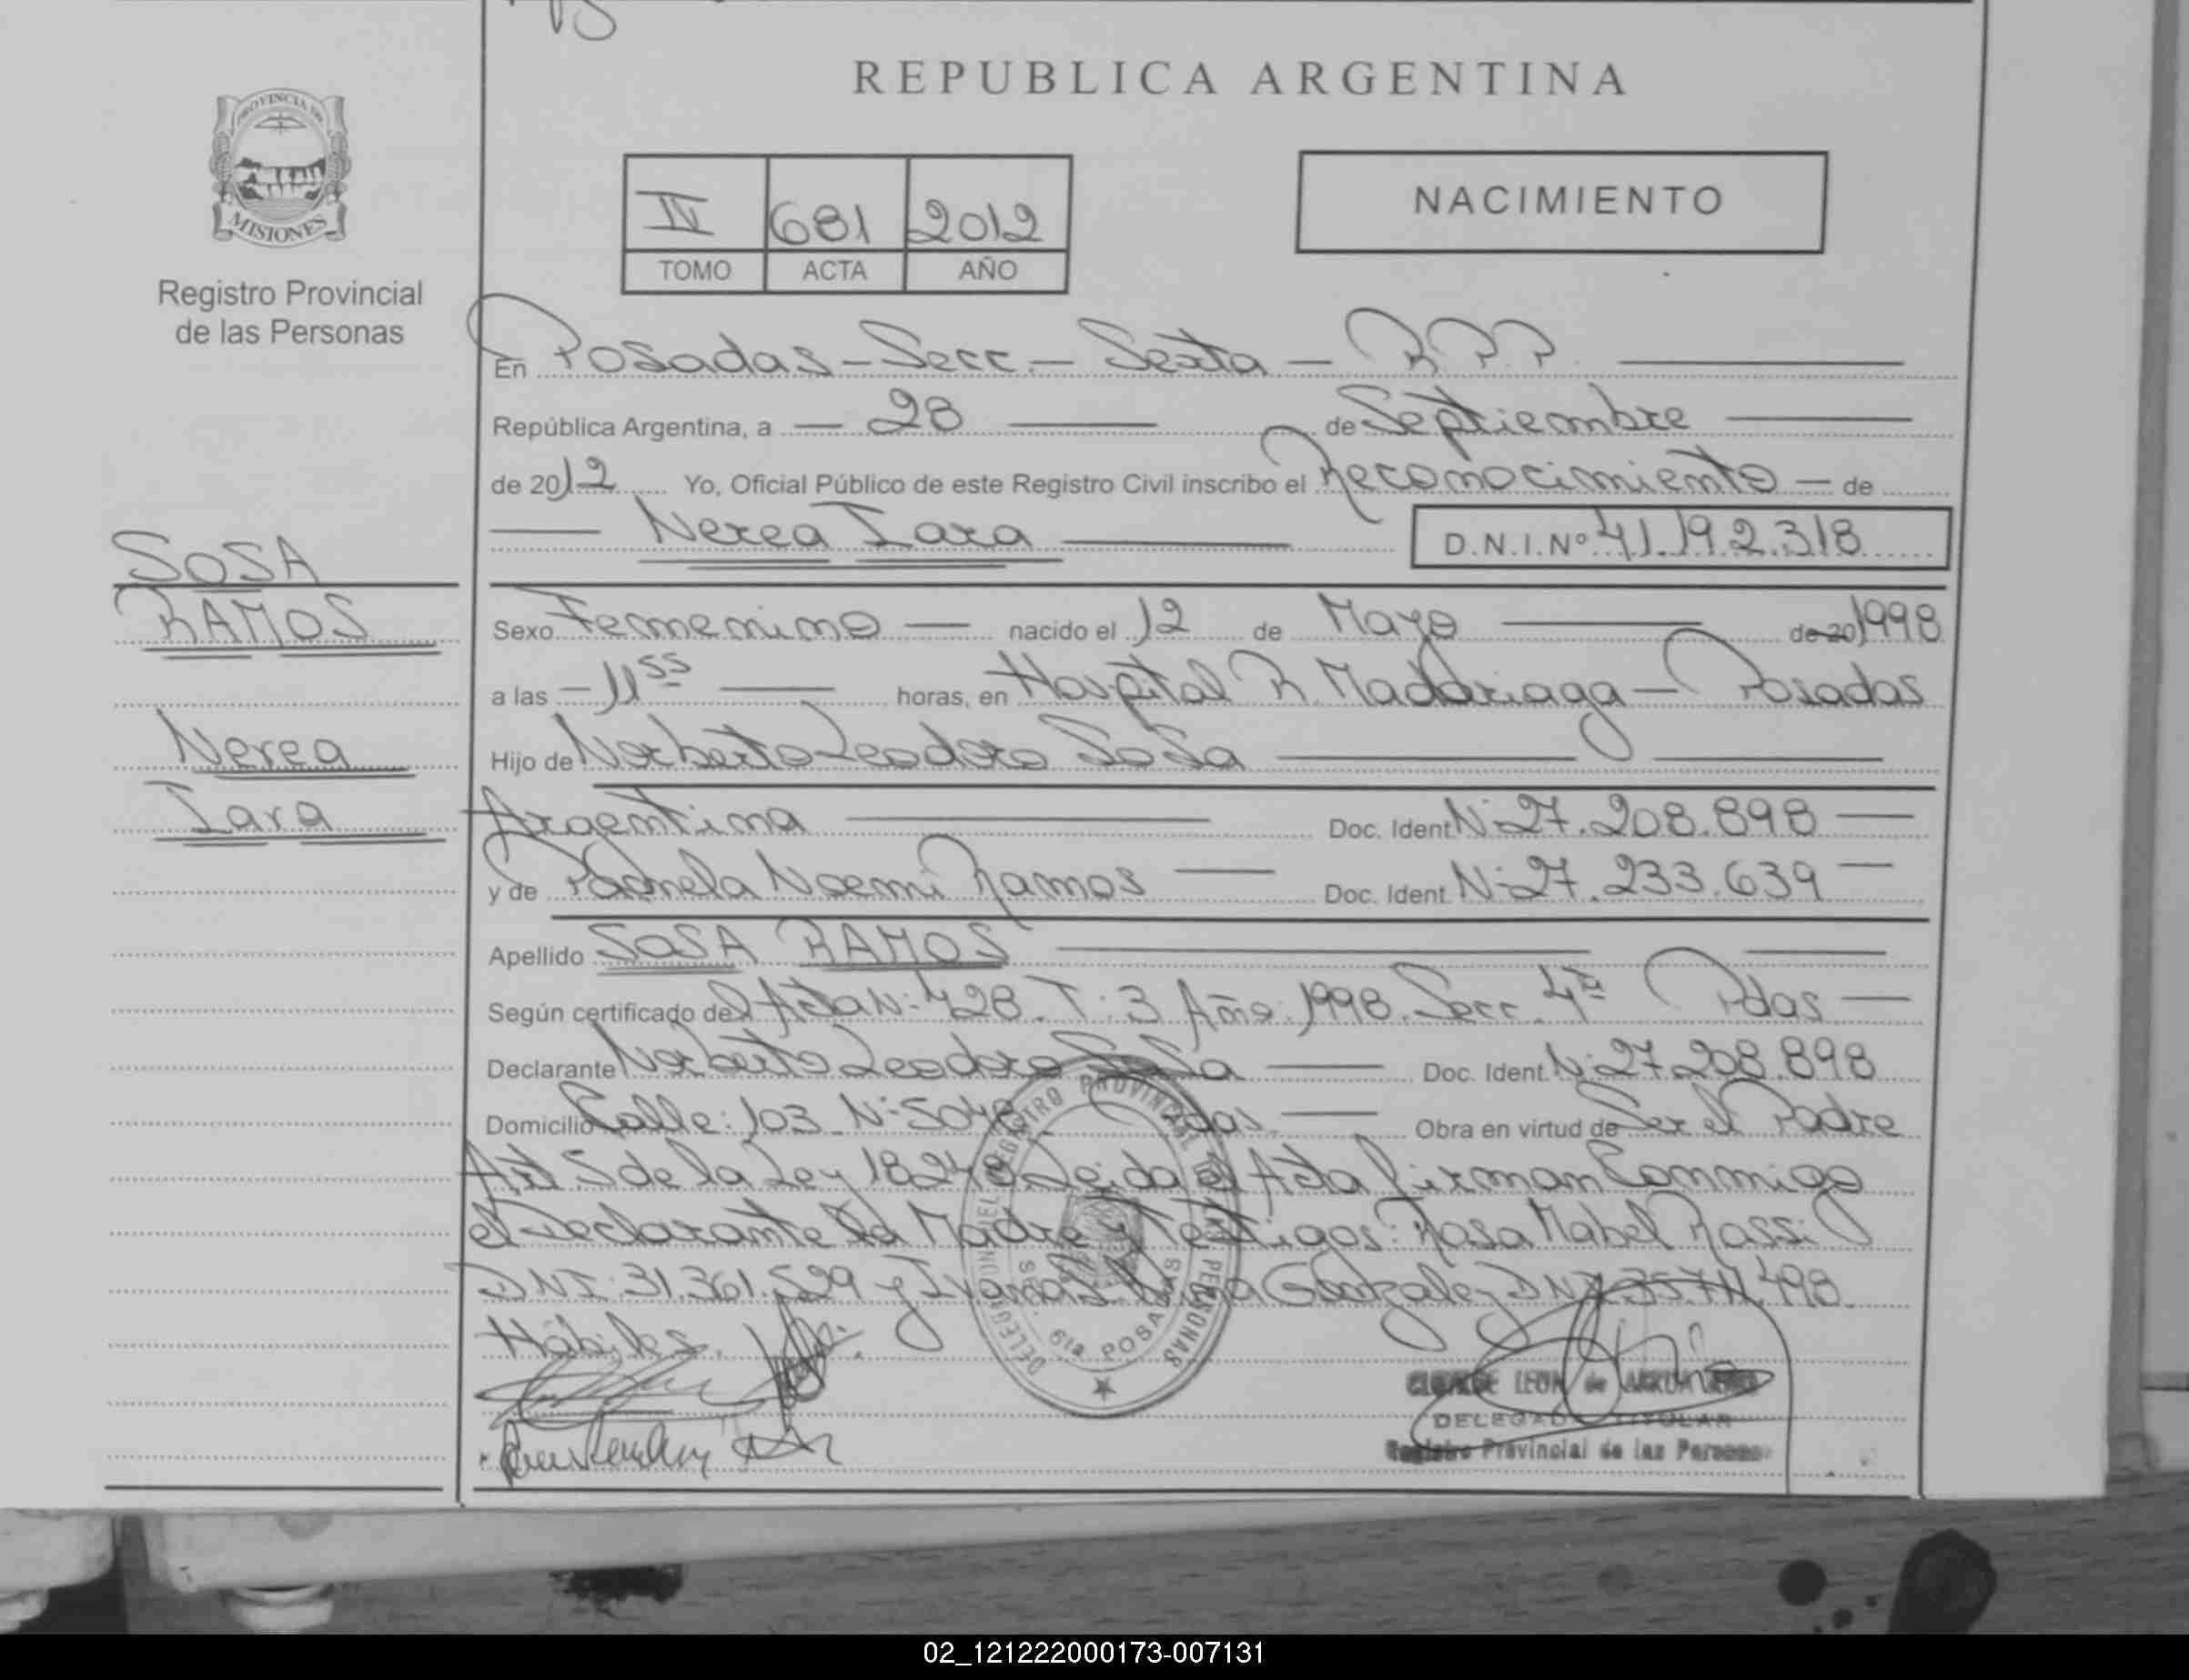 REPUBLICA ARGENTINA
PROVINCIA DE
MISIONES
Registro Provincial
de las Personas
IV 681 2012
TOMO ACTA AÑO
NACIMIENTO
En Posadas - Secc. - Sexta - R.P.P.
República Argentina, a 28 de Septiembre
de 2012 Yo, Oficial Público de este Registro Civil inscribo el Reconocimiento de
Nerea Iara D.N.I. Nº 41.192.318
SOSA
RAMOS
Nerea
Iara
Sexo Femenino nacido el 12 de Mayo de 20 1998
a las 11 55 horas, en Hospital R. Madariaga - Posadas
Hijo de Norberto Leodoro Sosa
Argentina Doc. Ident. Nº 27.208.898
y de Pamela Noemi Ramos Doc. Ident. Nº 27.233.639
Apellido SOSA RAMOS
Según certificado del Acta Nº 428. T: 3 Año: 1998. Secc. 4ta Pdas
Declarante Norberto Leodoro Sosa Doc. Ident. Nº 27.208.898
Domicilio Calle: 103 Nº 5048 Pdas. Obra en virtud de Ser el Padre
Art 5 de la Ley 18248 Leida el Acta firman Conmigo
el Declarante la Madre y Testigos: Rosa Mabel Rossi
DNI: 31.361.529 y Gonzalez DNI 498.
Hábiles.
REGISTRO PROVINCIAL PERSONAS
6ta POSADAS
LEON de
DELEGADO TITULAR
Registro Provincial de las Personas
02_121222000173-007131